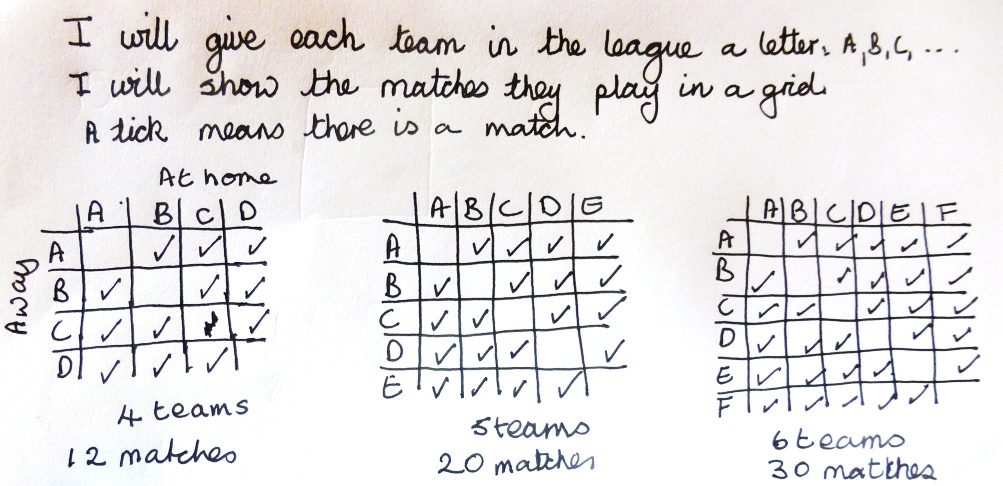 I will give each team in the league a letter. A, B, C, ...
I will show the matches they play in a grid.
A tick means there is a match.
At home
A B C D
Away
A ✓ ✓ ✓
B ✓ ✓ ✓
C ✓ ✓ ✓
D ✓ ✓ ✓
4 teams
12 matches
A B C D E
A ✓ ✓ ✓ ✓
B ✓ ✓ ✓ ✓
C ✓ ✓ ✓ ✓
D ✓ ✓ ✓ ✓
E ✓ ✓ ✓ ✓
5 teams
20 matches
A B C D E F
A ✓ ✓ ✓ ✓ ✓
B ✓ ✓ ✓ ✓ ✓
C ✓ ✓ ✓ ✓ ✓
D ✓ ✓ ✓ ✓ ✓
E ✓ ✓ ✓ ✓ ✓
F ✓ ✓ ✓ ✓ ✓
6 teams
30 matches